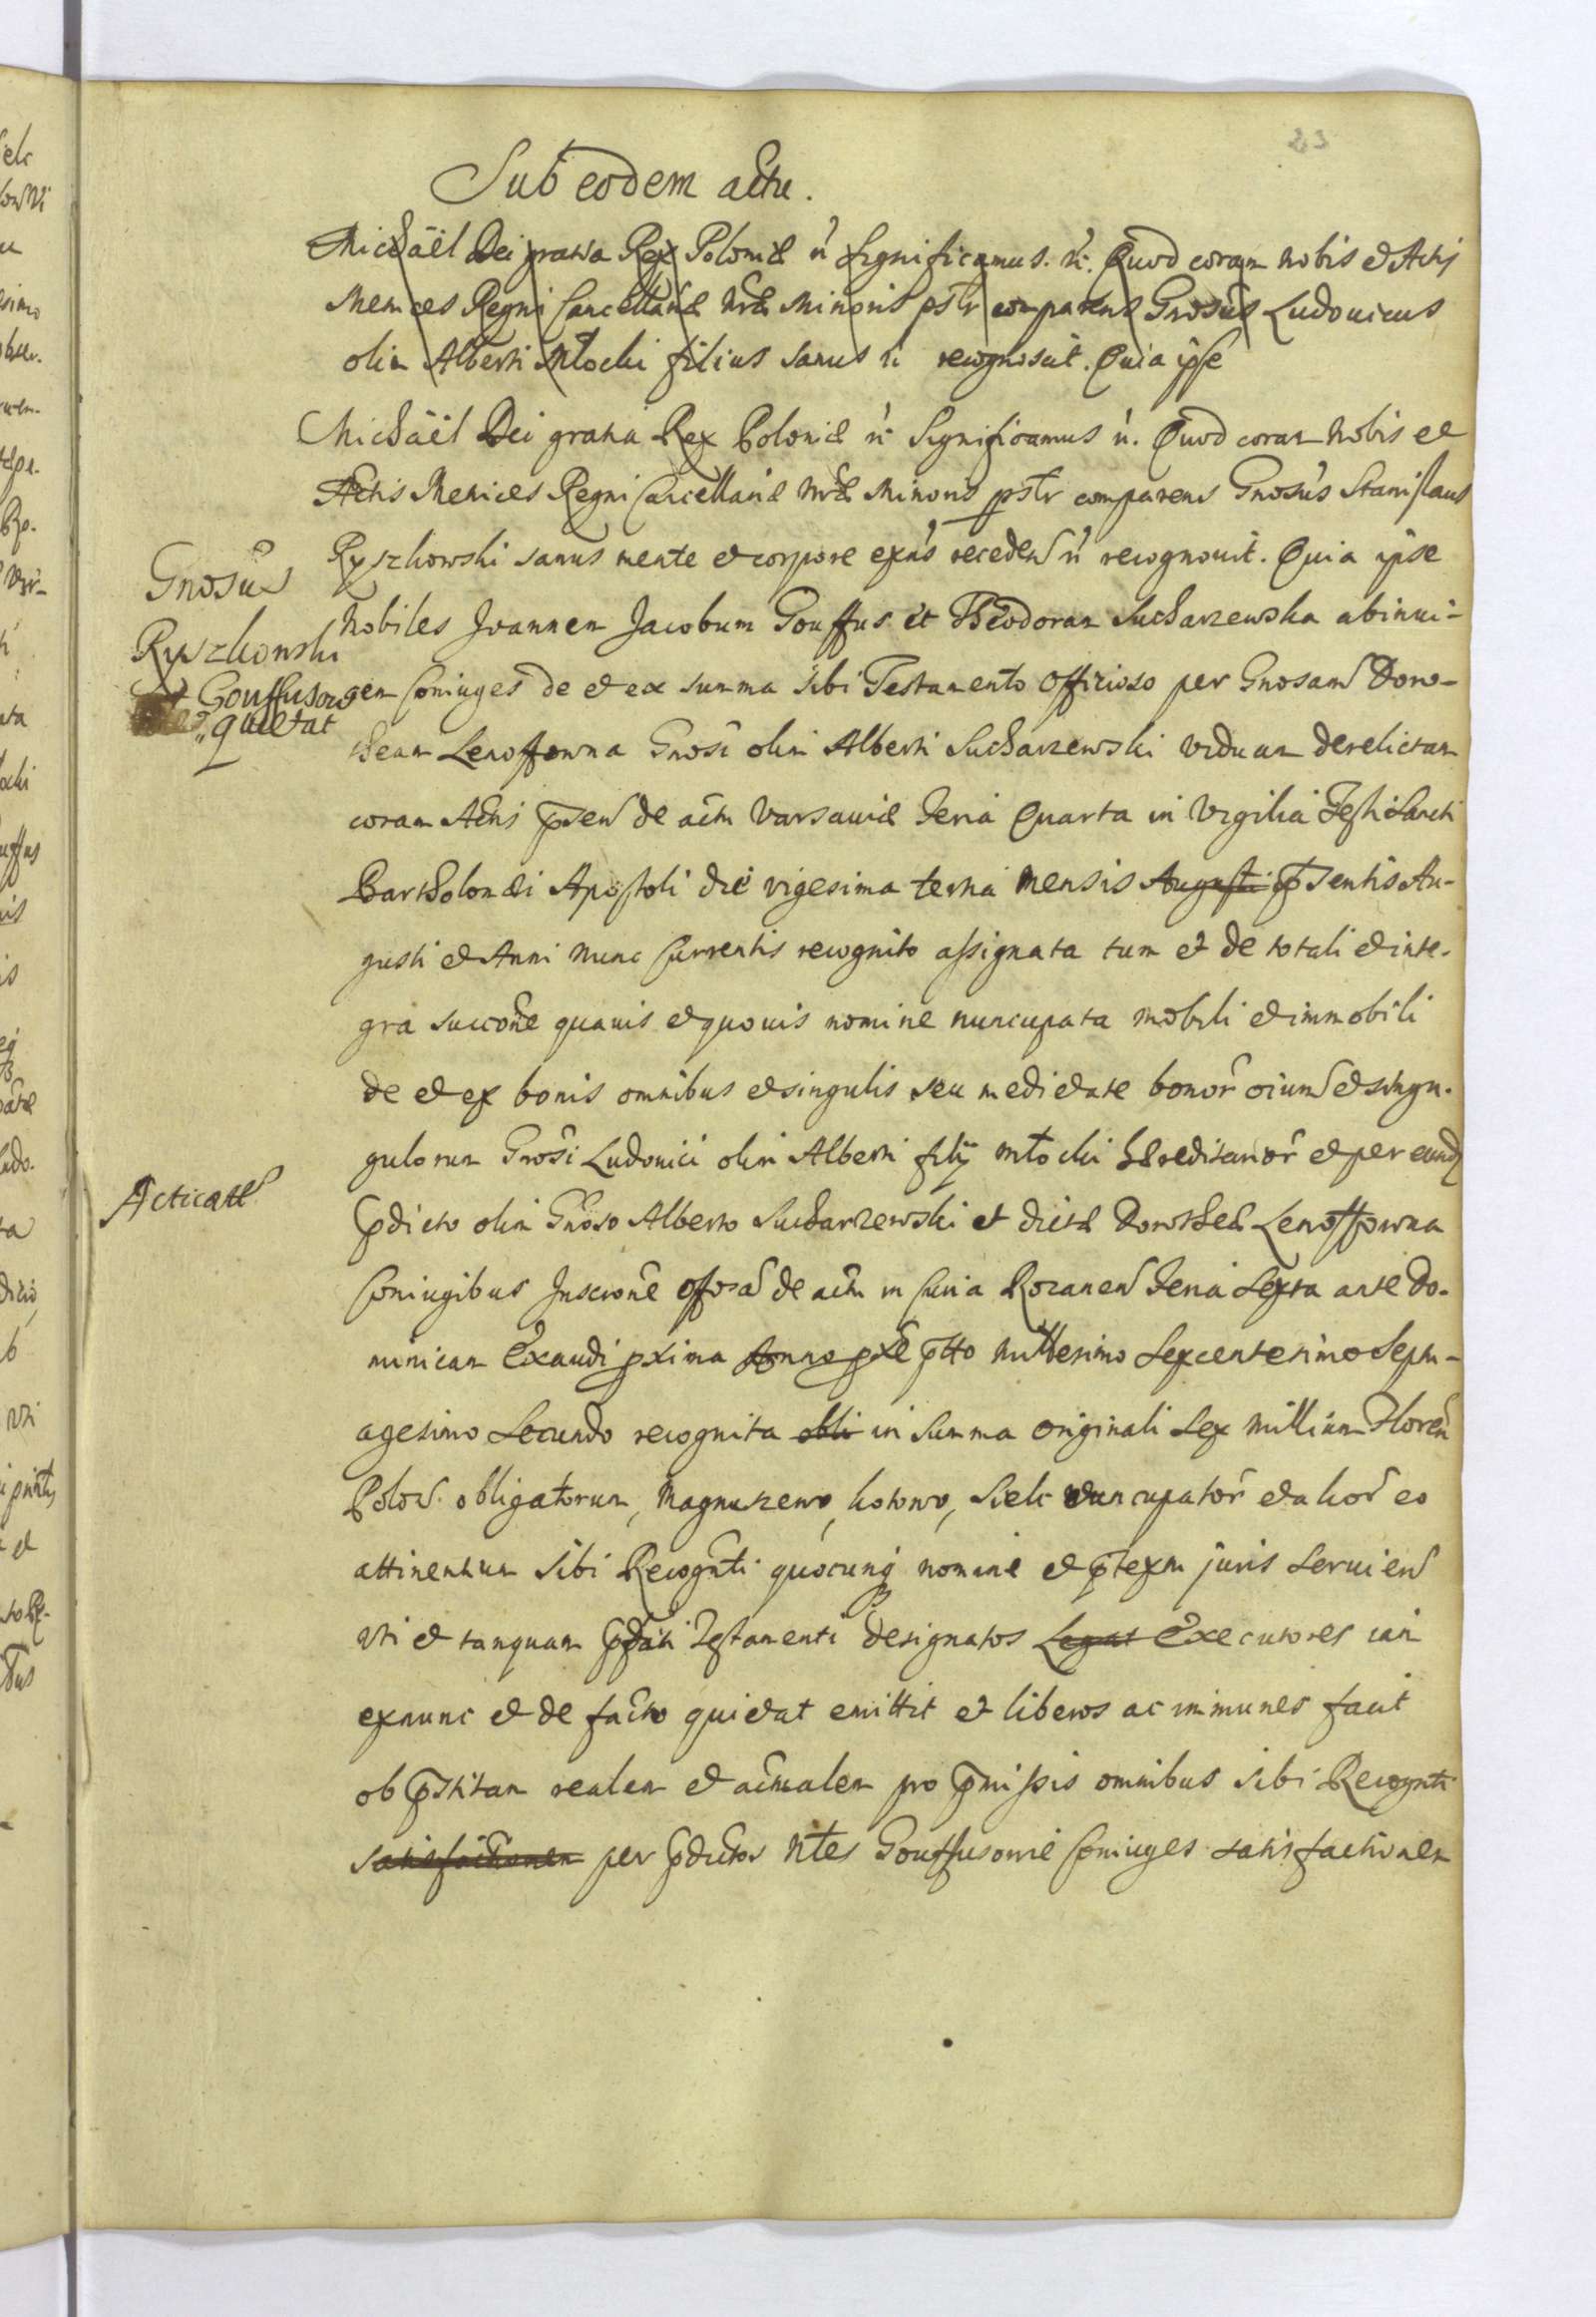 23
Sub eodem actu.
Michaël Dei gratia Rex Poloniæ &c Significamus. &c. Quod coram nobis et Actis
Metrices Regni Cancellariæ nræ Minoris pstr comparens Gnosus Ludovicus
olim Alberti Młocki filius sanus &c recognovit. Quia ipse
Michaël Dei gratia Rex Poloniæ &c Significamus &c. Quod coram Nobis et
Actis Metrices Regni Cancellariæ Nræ Minoris pstr comparens Gnosus Stanislaus
Ryszkowski sanus mente et corpore expñs recedens &c recognovit. Quia ipse
Nobiles Joannem Jacobum Gouffus et Theodoram Sucharzewska abinui-
cem Coniuges de et ex summa sibi Testamento Officioso per Gnosam Doro-
theam Lenoffowna Gnosi olim Alberti Sucharzewski viduam derelictam
coram Actis pñsen de actu Varsaviæ Feria Quarta in Vigilia Festi Sancti
Bartholomæi Apostoli die vigesima tertia Mensis Augusti pñsentis Au-
gusti et Anni Nunc Currentis recognito assignata tum et de totali et inte-
gra succone quavis et quovis nomine nuncupata mobili et immobili
de et ex bonis omnibus et singulis seu medietate bonor oium et singu-
gulorum Gnosi Ludovici olim Alberti filij Młocki hæreditarior et per eund
pdicto olim Gnoso Alberto Sucharzewski et dictæ Dorotheæ Lenoffowna
Coniugibus Inscrone de actu in Curia Rozanen Feria Sexta ante Do-
minicam Exaudi pxima Anno pxe ptto Millesimo Sexcentesimo Septu-
agesimo Secundo recognita obli in Summa originali Sex Millium Floren
Polon. obligatorum, Magnuszewo, kotowo, Sielc nuncupator et alior eo
attinentium Sibi Recognti quocunq nomine et ptextu juris Servien
Uti et tanquam pdicti Testamenti designatos Legat Executores iam
exnunc et de facto quietat emittit et liberos ac immunes facit
ob pstitam realem et actualem pro pmissis omnibus sibi Recognti
satisfactionem per pdictos Nles Gouffusowie Coniuges satisfactionem
Gnosus
Ryszkowski
Gouffusow
quietat
Acticatt